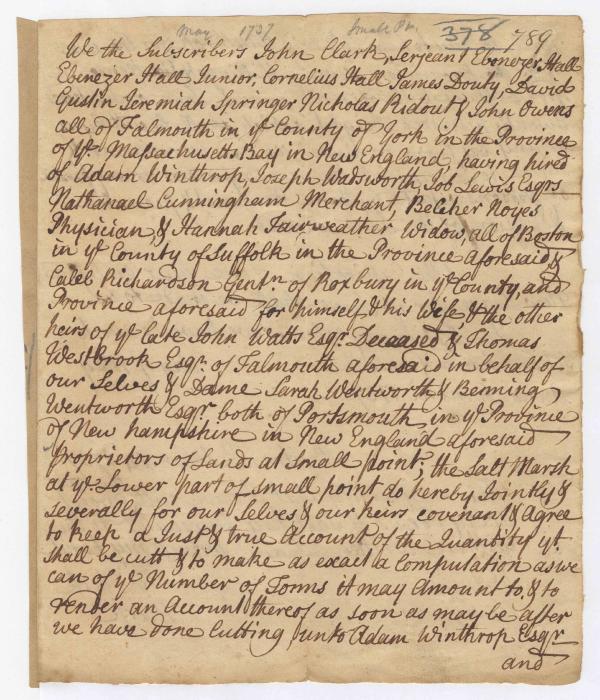 May 1737 Small Pt. 378 789
We the Subscribers John Clark, Serjeant Ebenezer Hall
Ebenezer Hall Junior, Cornelius Hall James Douty, David
Gustin Jeremiah Springer Nicholas Ridout & John Owens
all of Falmouth in ye County of York in the Province
of ye Massachusetts Bay in New England, having hired
of Adam Winthrop, Joseph Wadsworth, Job Lewis Esqrs
Nathanael Cunningham Merchant, Belcher Noyes
Physician, & Hannah Fairweather Widow, all of Boston
in ye County of Suffolk in the Province aforesaid, &
Caleb Richardson Gentn of Roxbury in ye County, and
Province aforesaid for himself & his Wife & the other
heirs of ye late John Watts Esqr. Deceased & Thomas
Westbrook Esqr. of Falmouth aforesaid in behalf of
our Selves & Dame Sarah Wentworth & Benning
Wentworth Esqr. both of Portsmouth in ye Province
of New hampshire in New England aforesaid
Proprietors of Lands at Small point; the Salt Marsh
at ye Lower part of small point do hereby Jointly &
severally for our Selves & our heirs covenant & Agree
to keep a Just & true Account of the Quantity yt.
shall be cutt & to make as exact a Computation as we
can of ye Number of Tonns it may Amount to, & to
render an Account thereof as soon as may be after
we have done Cutting unto Adam Winthrop Esqr
and